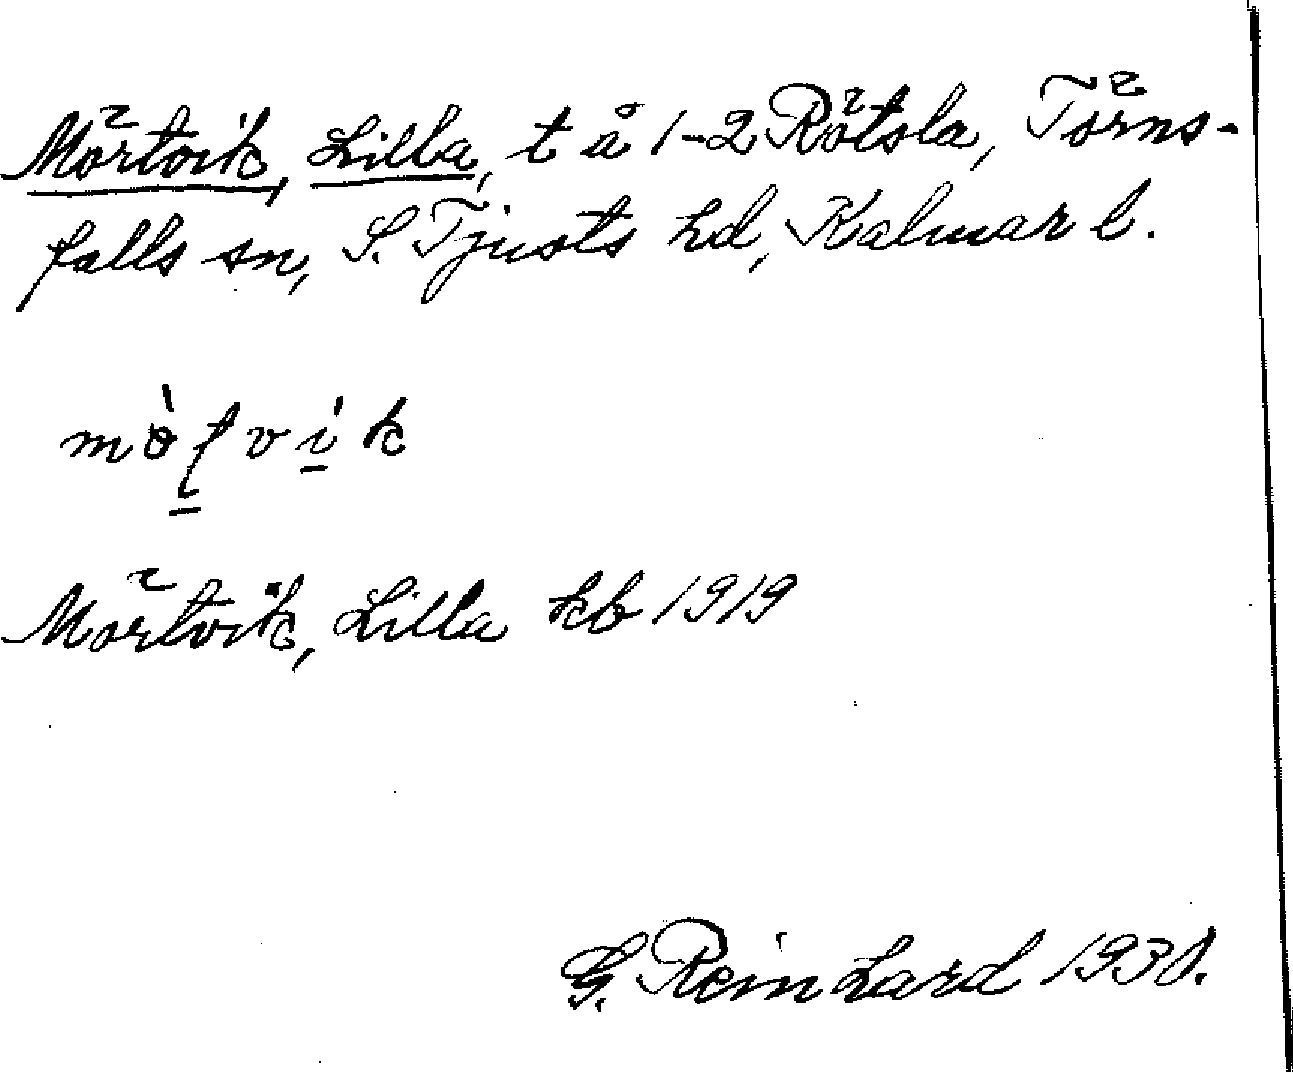 Mörtvik, Lilla, t å 1-2 Rötsla, Törns-
falls sn, S. Tjusts hd, Kalmar l.
Mörtvik, Lilla kb 1919
G. Reinhard 1931.